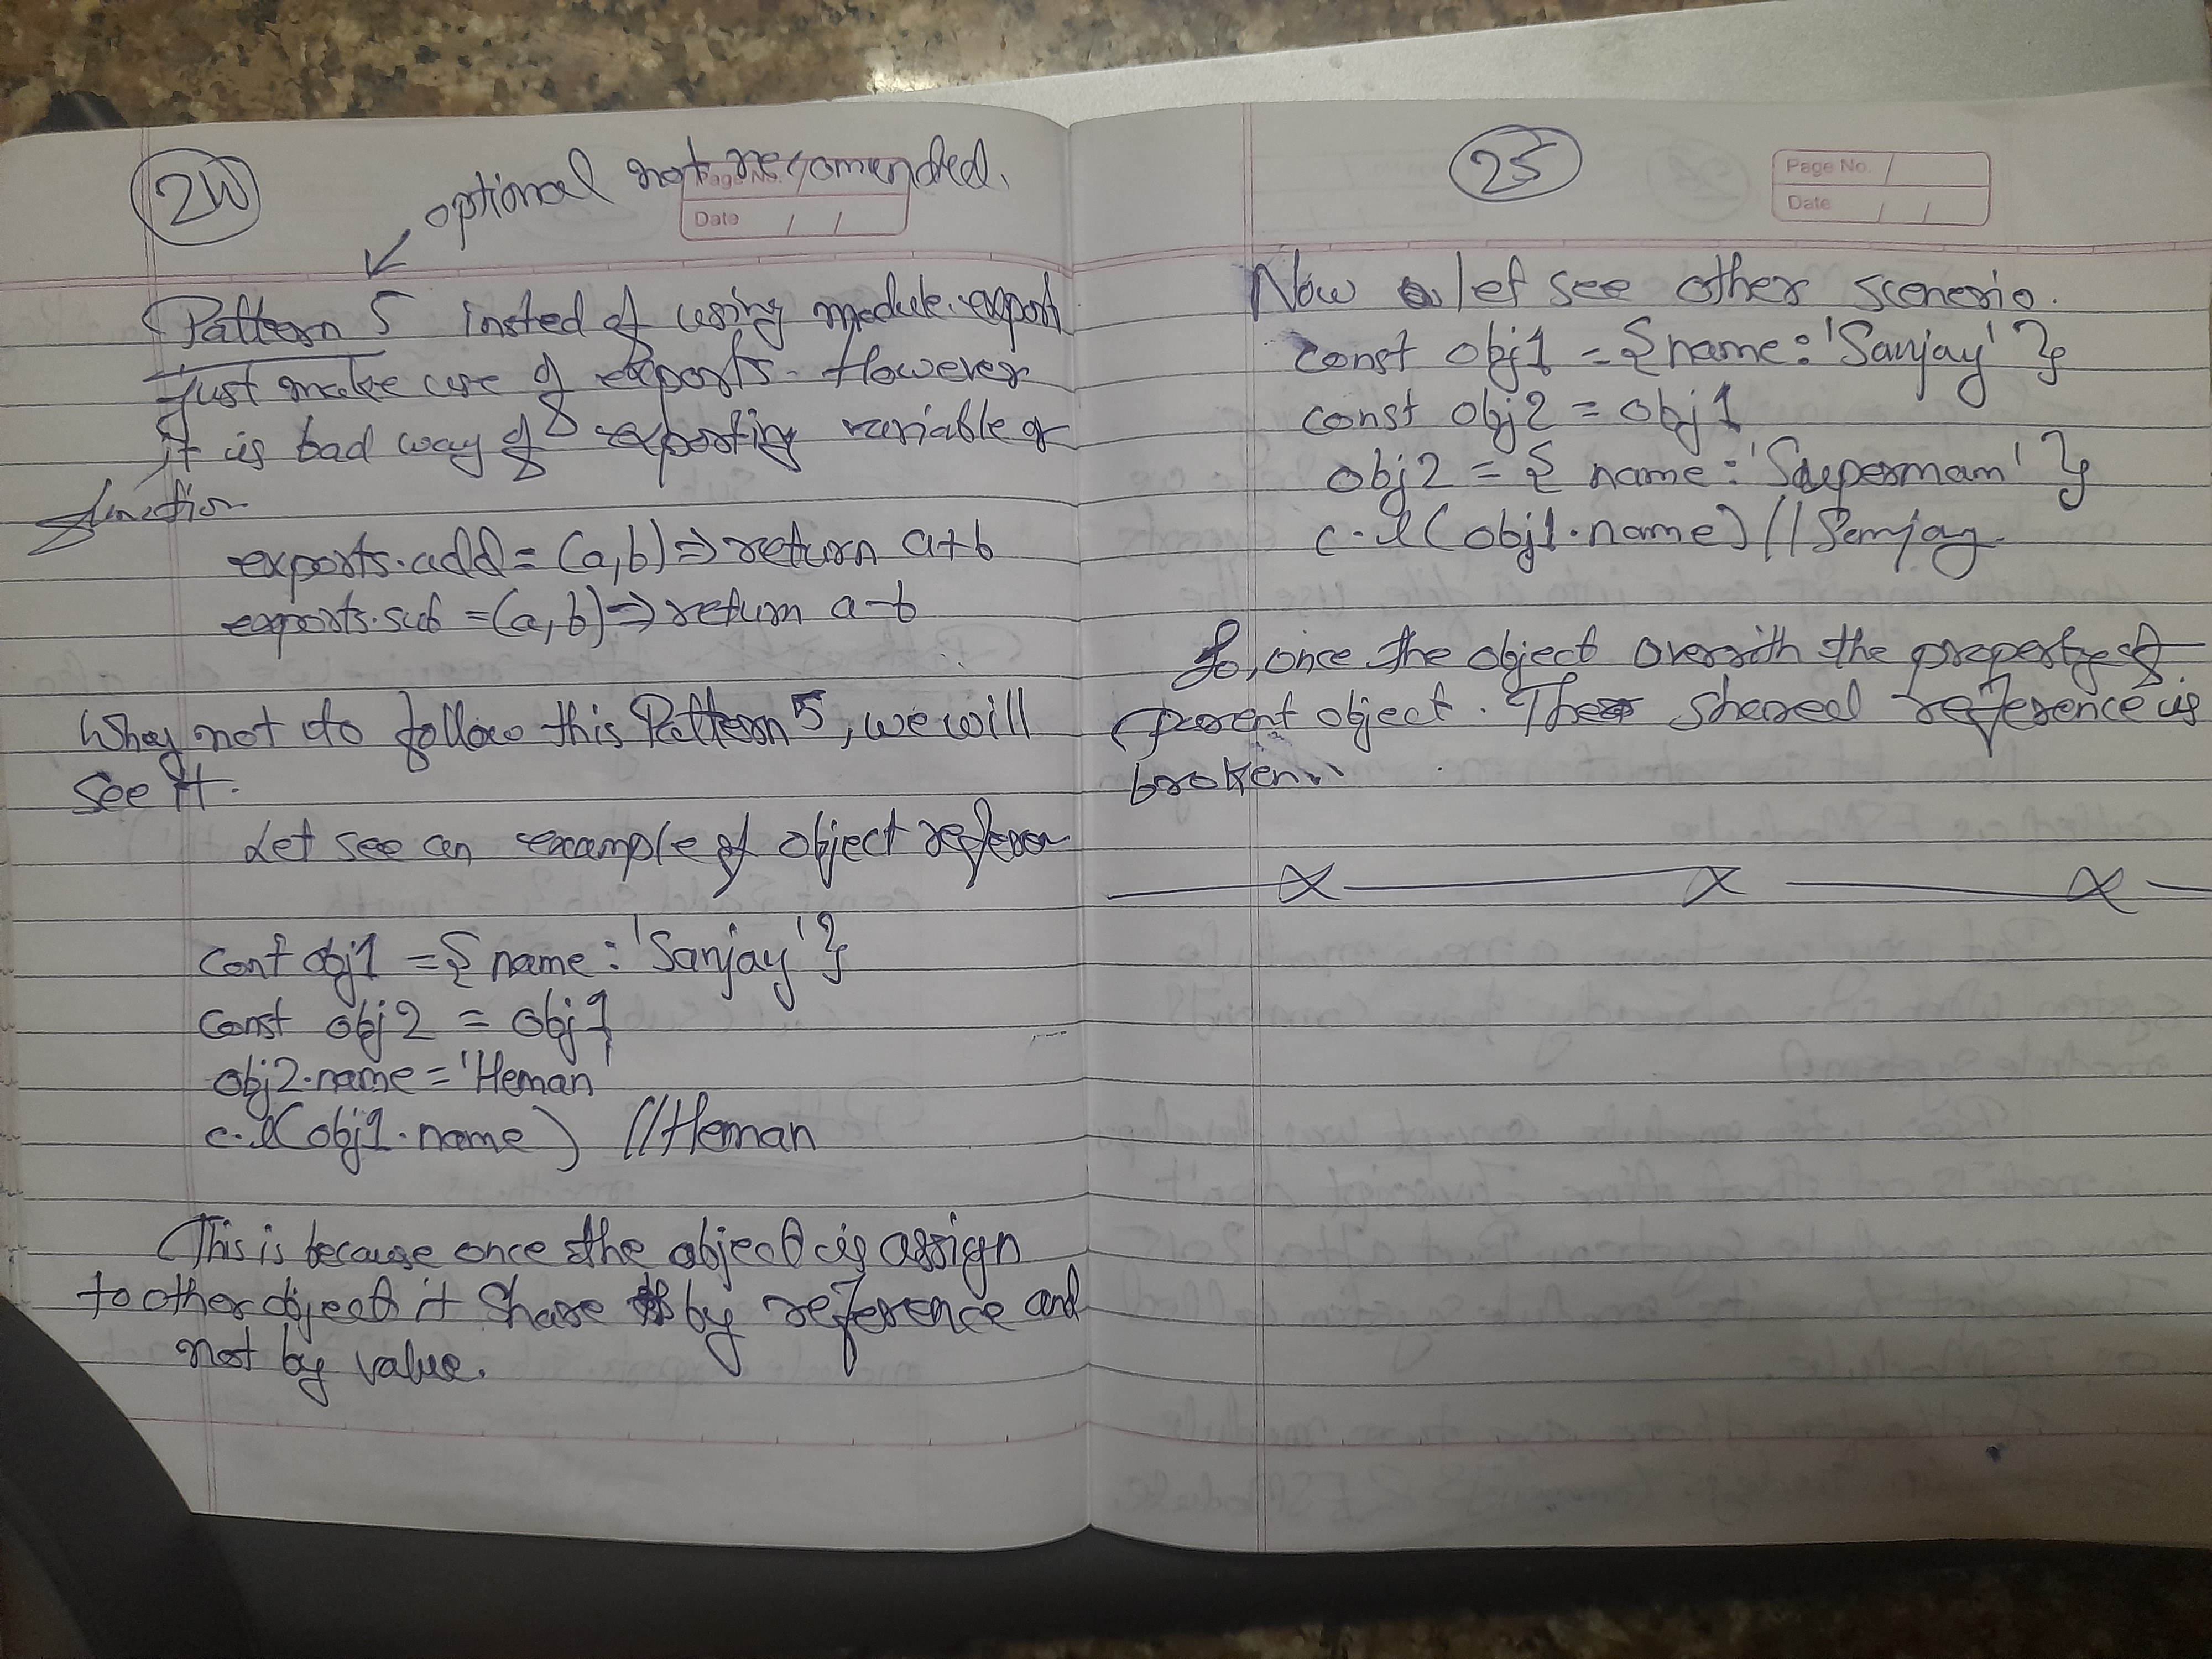 24
optional not recommended.
Page No.
Date / /
Pattern 5 insted of using module.export
Just make use of exports. However
It is bad way of exporting variable or
function.
exports.add = (a,b) => return a+b
exports.sub = (a,b) => return a-b
Why not to follow this Pattern 5, we will
see it.
Let see an example of object refere
Const obj1 = { name: 'Sanjay' }
Const obj2 = obj1
obj2.name = 'Heman
c.l(obj1.name) // Heman
This is because once the object is assign
to other object it share by reference and
not by value.
25
Page No. /
Date / /
Now let see other scenerio.
const obj1 = { name: 'Sanjay' }
const obj2 = obj1
obj2 = { name: 'Superman' }
c.l(obj1.name) // Senjay
So, once the object with the property of
parent object. The shared reference is
broken.
x x x